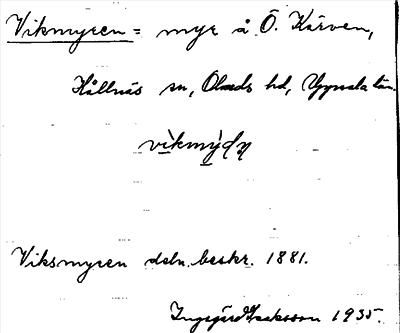 Vikmyren = myr å Ö. Kärven,
Hållnäs sn, Olands hd, Uppsala län.
Viksmyren deln. beskr. 1881.
Ingegärd Isaksson 1935.